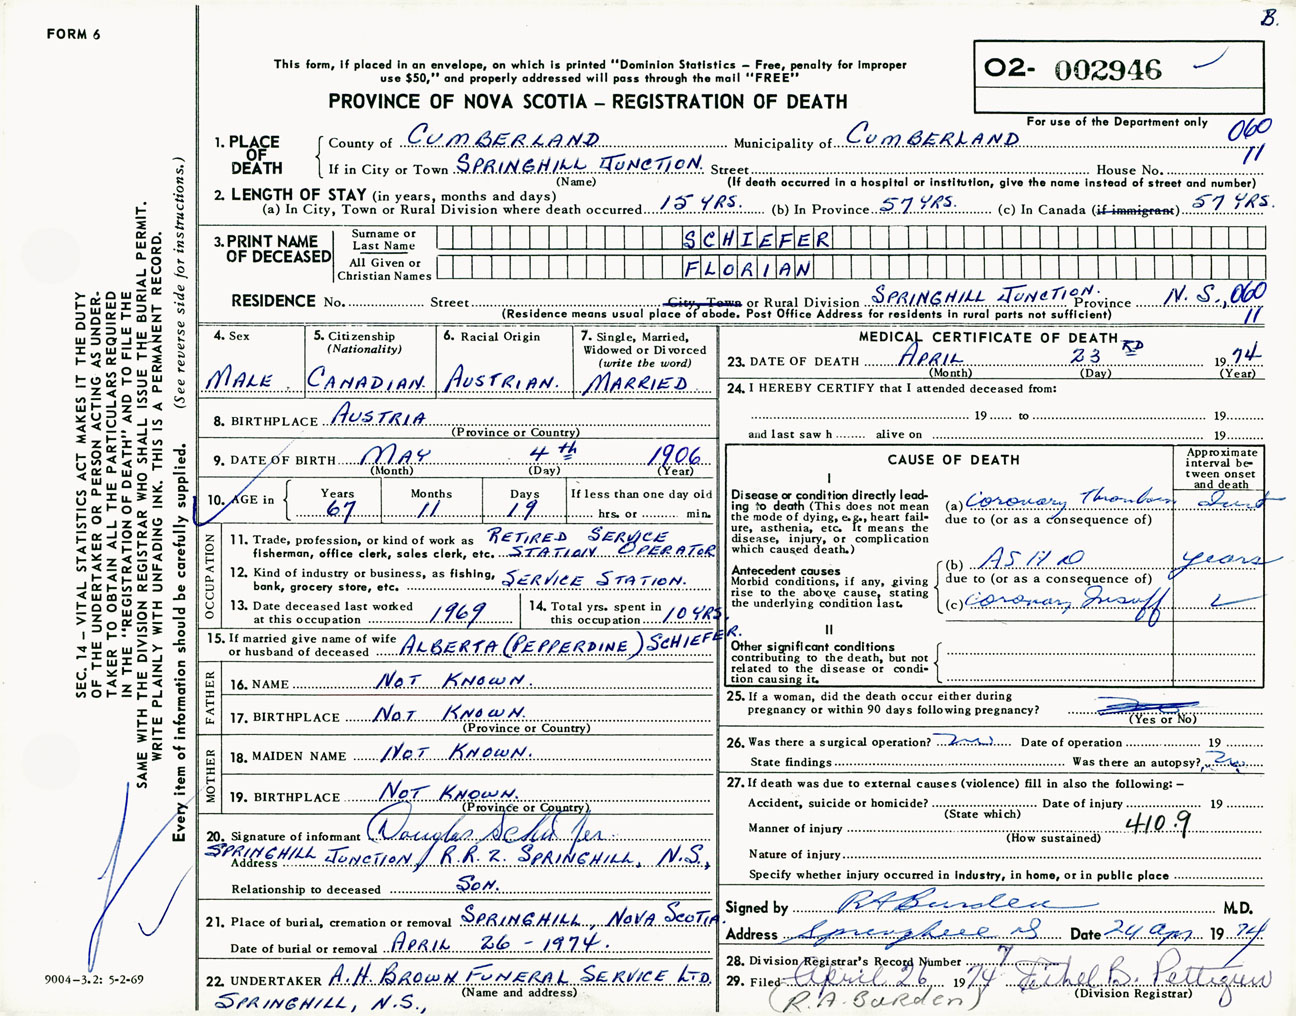 B.
FORM 6
This form, if placed in an envelope, on which is printed "Dominion Statistics – Free, penalty for improper
use $50," and properly addressed will pass through the mail "FREE"
O2- 002946
PROVINCE OF NOVA SCOTIA – REGISTRATION OF DEATH
For use of the Department only
060
11
1. PLACE OF DEATH County of CUMBERLAND Municipality of CUMBERLAND
If in City or Town SPRINGHILL JUNCTION. Street House No.
(Name) (If death occurred in a hospital or institution, give the name instead of street and number)
2. LENGTH OF STAY (in years, months and days)
(a) In City, Town or Rural Division where death occurred 15 YRS. (b) In Province 57 YRS. (c) In Canada (if immigrant) 57 YRS.
3. PRINT NAME OF DECEASED Surname or Last Name SCHIEFER
All Given or Christian Names FLORIAN
RESIDENCE No. Street City, Town or Rural Division SPRINGHILL JUNCTION. Province N.S., 060
(Residence means usual place of abode. Post Office Address for residents in rural parts not sufficient) 11
4. Sex
MALE
5. Citizenship
(Nationality)
CANADIAN.
6. Racial Origin
AUSTRIAN.
7. Single, Married,
Widowed or Divorced
(write the word)
MARRIED
8. BIRTHPLACE AUSTRIA
(Province or Country)
9. DATE OF BIRTH MAY 4th 1906
(Month) (Day) (Year)
10. AGE in Years Months Days If less than one day old
67 11 19 hrs. or min.
OCCUPATION
11. Trade, profession, or kind of work as RETIRED SERVICE
fisherman, office clerk, sales clerk, etc. STATION OPERATOR
12. Kind of industry or business, as fishing,
bank, grocery store, etc. SERVICE STATION.
13. Date deceased last worked
at this occupation 1969
14. Total yrs. spent in
this occupation 10 YRS.
15. If married give name of wife
or husband of deceased ALBERTA (PEPPERDINE) SCHIEFER.
FATHER
16. NAME NOT KNOWN.
17. BIRTHPLACE NOT KNOWN.
(Province or Country)
MOTHER
18. MAIDEN NAME NOT KNOWN.
19. BIRTHPLACE NOT KNOWN.
(Province or Country)
20. Signature of informant Douglas Schiefer.
Address SPRINGHILL JUNCTION, R.R.2. SPRINGHILL, N.S.,
Relationship to deceased SON.
21. Place of burial, cremation or removal SPRINGHILL, NOVA SCOTIA.
Date of burial or removal APRIL 26 - 1974.
22. UNDERTAKER A.H. BROWN FUNERAL SERVICE LTD.
(Name and address)
SPRINGHILL, N.S.,
MEDICAL CERTIFICATE OF DEATH
23. DATE OF DEATH APRIL 23RD 1974
(Month) (Day) (Year)
24. I HEREBY CERTIFY that I attended deceased from:
19 to 19
and last saw h alive on 19
CAUSE OF DEATH
Approximate
interval be-
tween onset
and death
I
Disease or condition directly lead-
ing to death (This does not mean
the mode of dying, e.g., heart fail-
ure, asthenia, etc. It means the
disease, injury, or complication
which caused death.)
(a) Coronary Thrombosis
due to (or as a consequence of)
(b) ASHD years
Antecedent causes
Morbid conditions, if any, giving
rise to the above cause, stating
the underlying condition last.
due to (or as a consequence of)
(c) Coronary Insuff
II
Other significant conditions
contributing to the death, but not
related to the disease or condi-
tion causing it.
25. If a woman, did the death occur either during
pregnancy or within 90 days following pregnancy?
(Yes or No)
26. Was there a surgical operation? no Date of operation 19
State findings Was there an autopsy? no
27. If death was due to external causes (violence) fill in also the following: –
Accident, suicide or homicide? Date of injury 19
(State which)
Manner of injury 410.9
(How sustained)
Nature of injury
Specify whether injury occurred in industry, in home, or in public place
Signed by RABurden M.D.
Address Springhill NS Date 24 Apr 1974
28. Division Registrar's Record Number 7
29. Filed April 26 1974 Ethel B. Pettigrew
(R.A. Burden) (Division Registrar)
SEC. 14 – VITAL STATISTICS ACT MAKES IT THE DUTY
OF THE UNDERTAKER OR PERSON ACTING AS UNDER-
TAKER TO OBTAIN ALL THE PARTICULARS REQUIRED
IN THE "REGISTRATION OF DEATH" AND TO FILE THE
SAME WITH THE DIVISION REGISTRAR WHO SHALL ISSUE THE BURIAL PERMIT.
WRITE PLAINLY WITH UNFADING INK. THIS IS A PERMANENT RECORD.
Every item of Information should be carefully supplied. (See reverse side for instructions.)
9004–3.2: 5-2-69